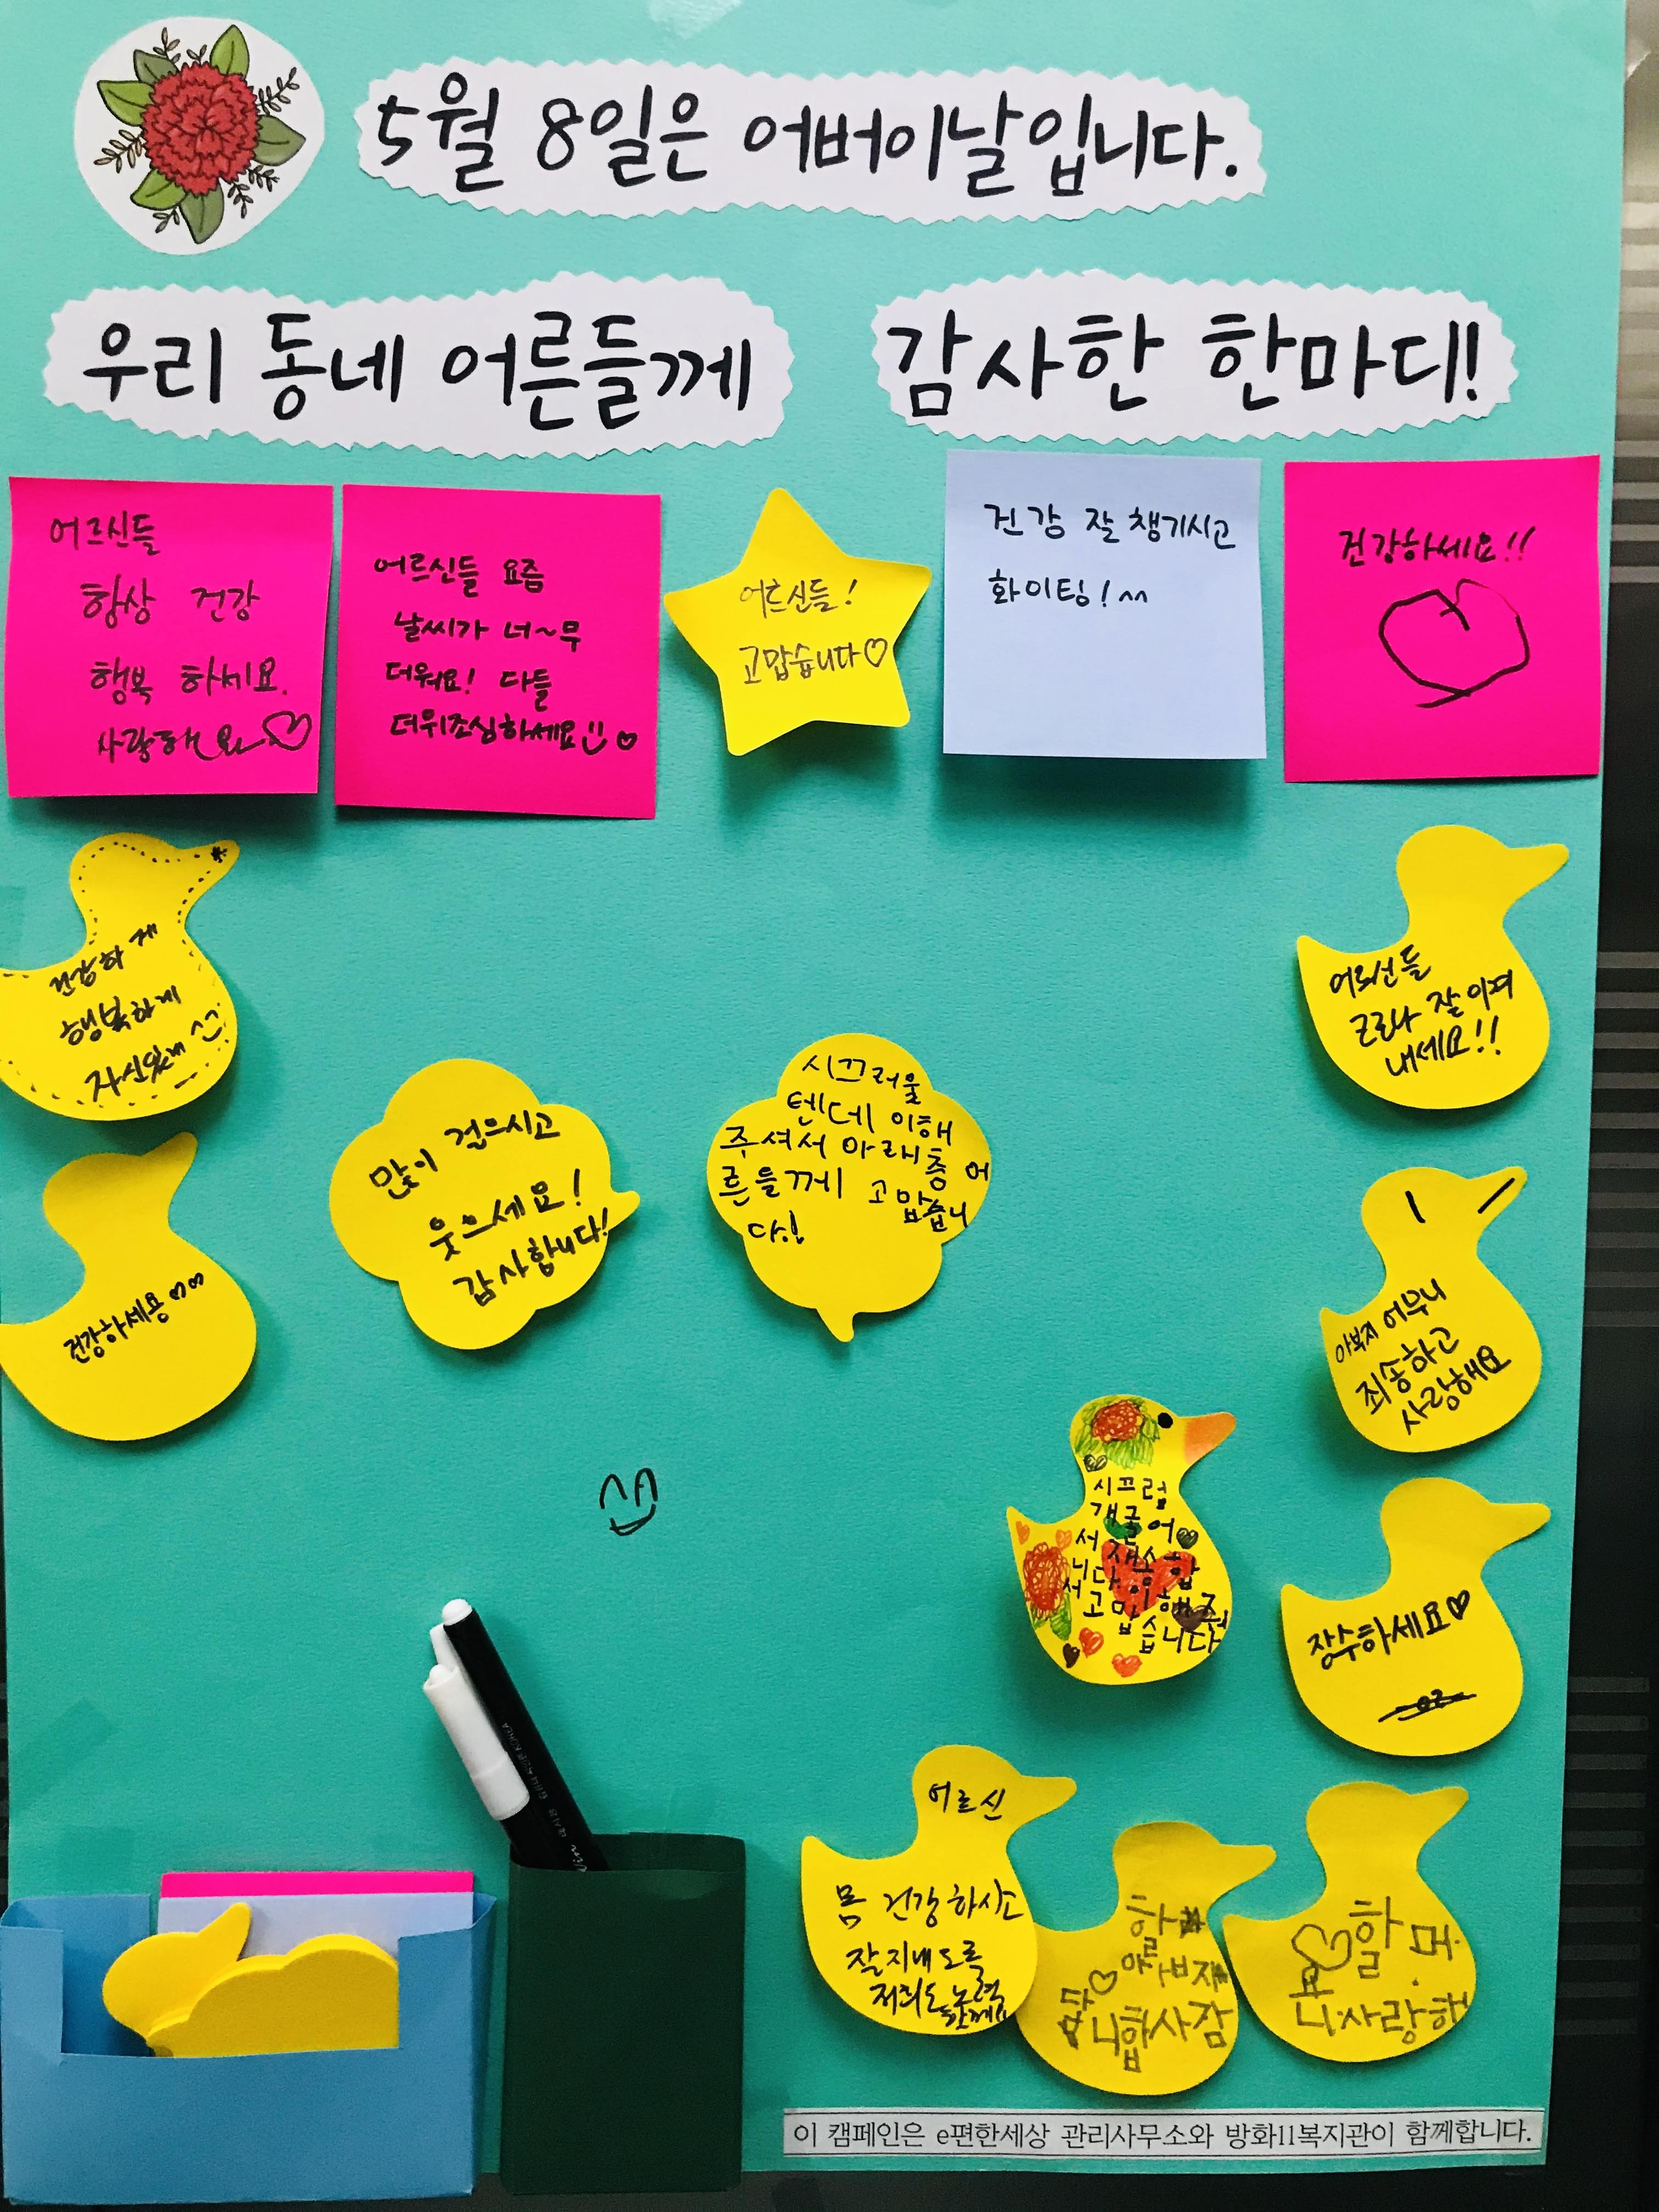 5월 8일은 어버이날입니다.
우리 동네 어른들께 감사한 한마디!
어르신들
항상 건강
행복 하세요.
사랑해요
어르신들 요즘
날씨가 너~무
더워요! 다들
더위조심하세요
어르신들!
고맙습니다♡
건강 잘 챙기시고
화이팅! ^^
건강하세요!!
건강하게
행복하게
자신있게 ^^
어르신들
코로나 잘 이겨
내세요!!
많이 걸으시고
웃으세요!
감사합니다!
시끄러울
텐데 이해
주셔서 아래층 어
른들께 고맙습니
다!
건강하세용♡♡
아부지 어무니
죄송하고
사랑해요
시끄럽
게 굴어
서 재송합
니다 이해 줘
서 고맙습니다
장수하세요♡
어르신
몸 건강하시고
잘 지내도록
저희도 노력
할께요
할
아버지
니합사감
♡할머
요
니사랑해
이 캠페인은 e편한세상 관리사무소와 방화11복지관이 함께합니다.